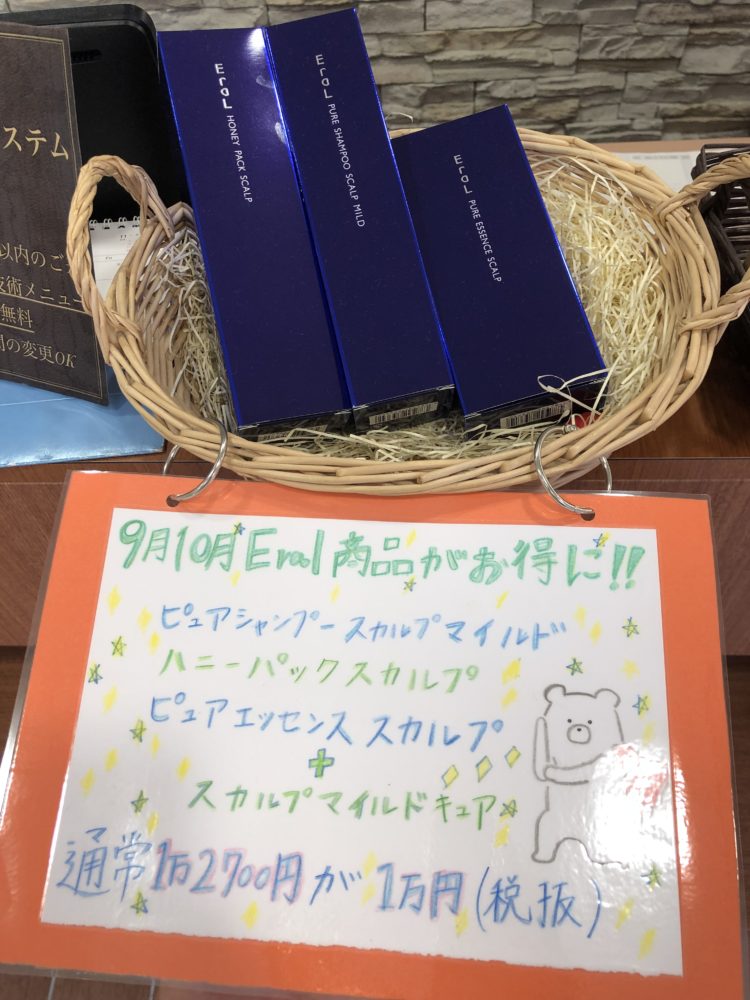 ステム
以内のご
技術メニュー
無料
の変更OK
Eral HONEY PACK SCALP
Eral PURE SHAMPOO SCALP MILD
Eral PURE ESSENCE SCALP
9月10月Eral商品がお得に!!
ピュアシャンプースカルプマイルド
ハニーパックスカルプ
ピュアエッセンススカルプ
+
スカルプマイルドキュア
通常1万2700円が1万円(税抜)